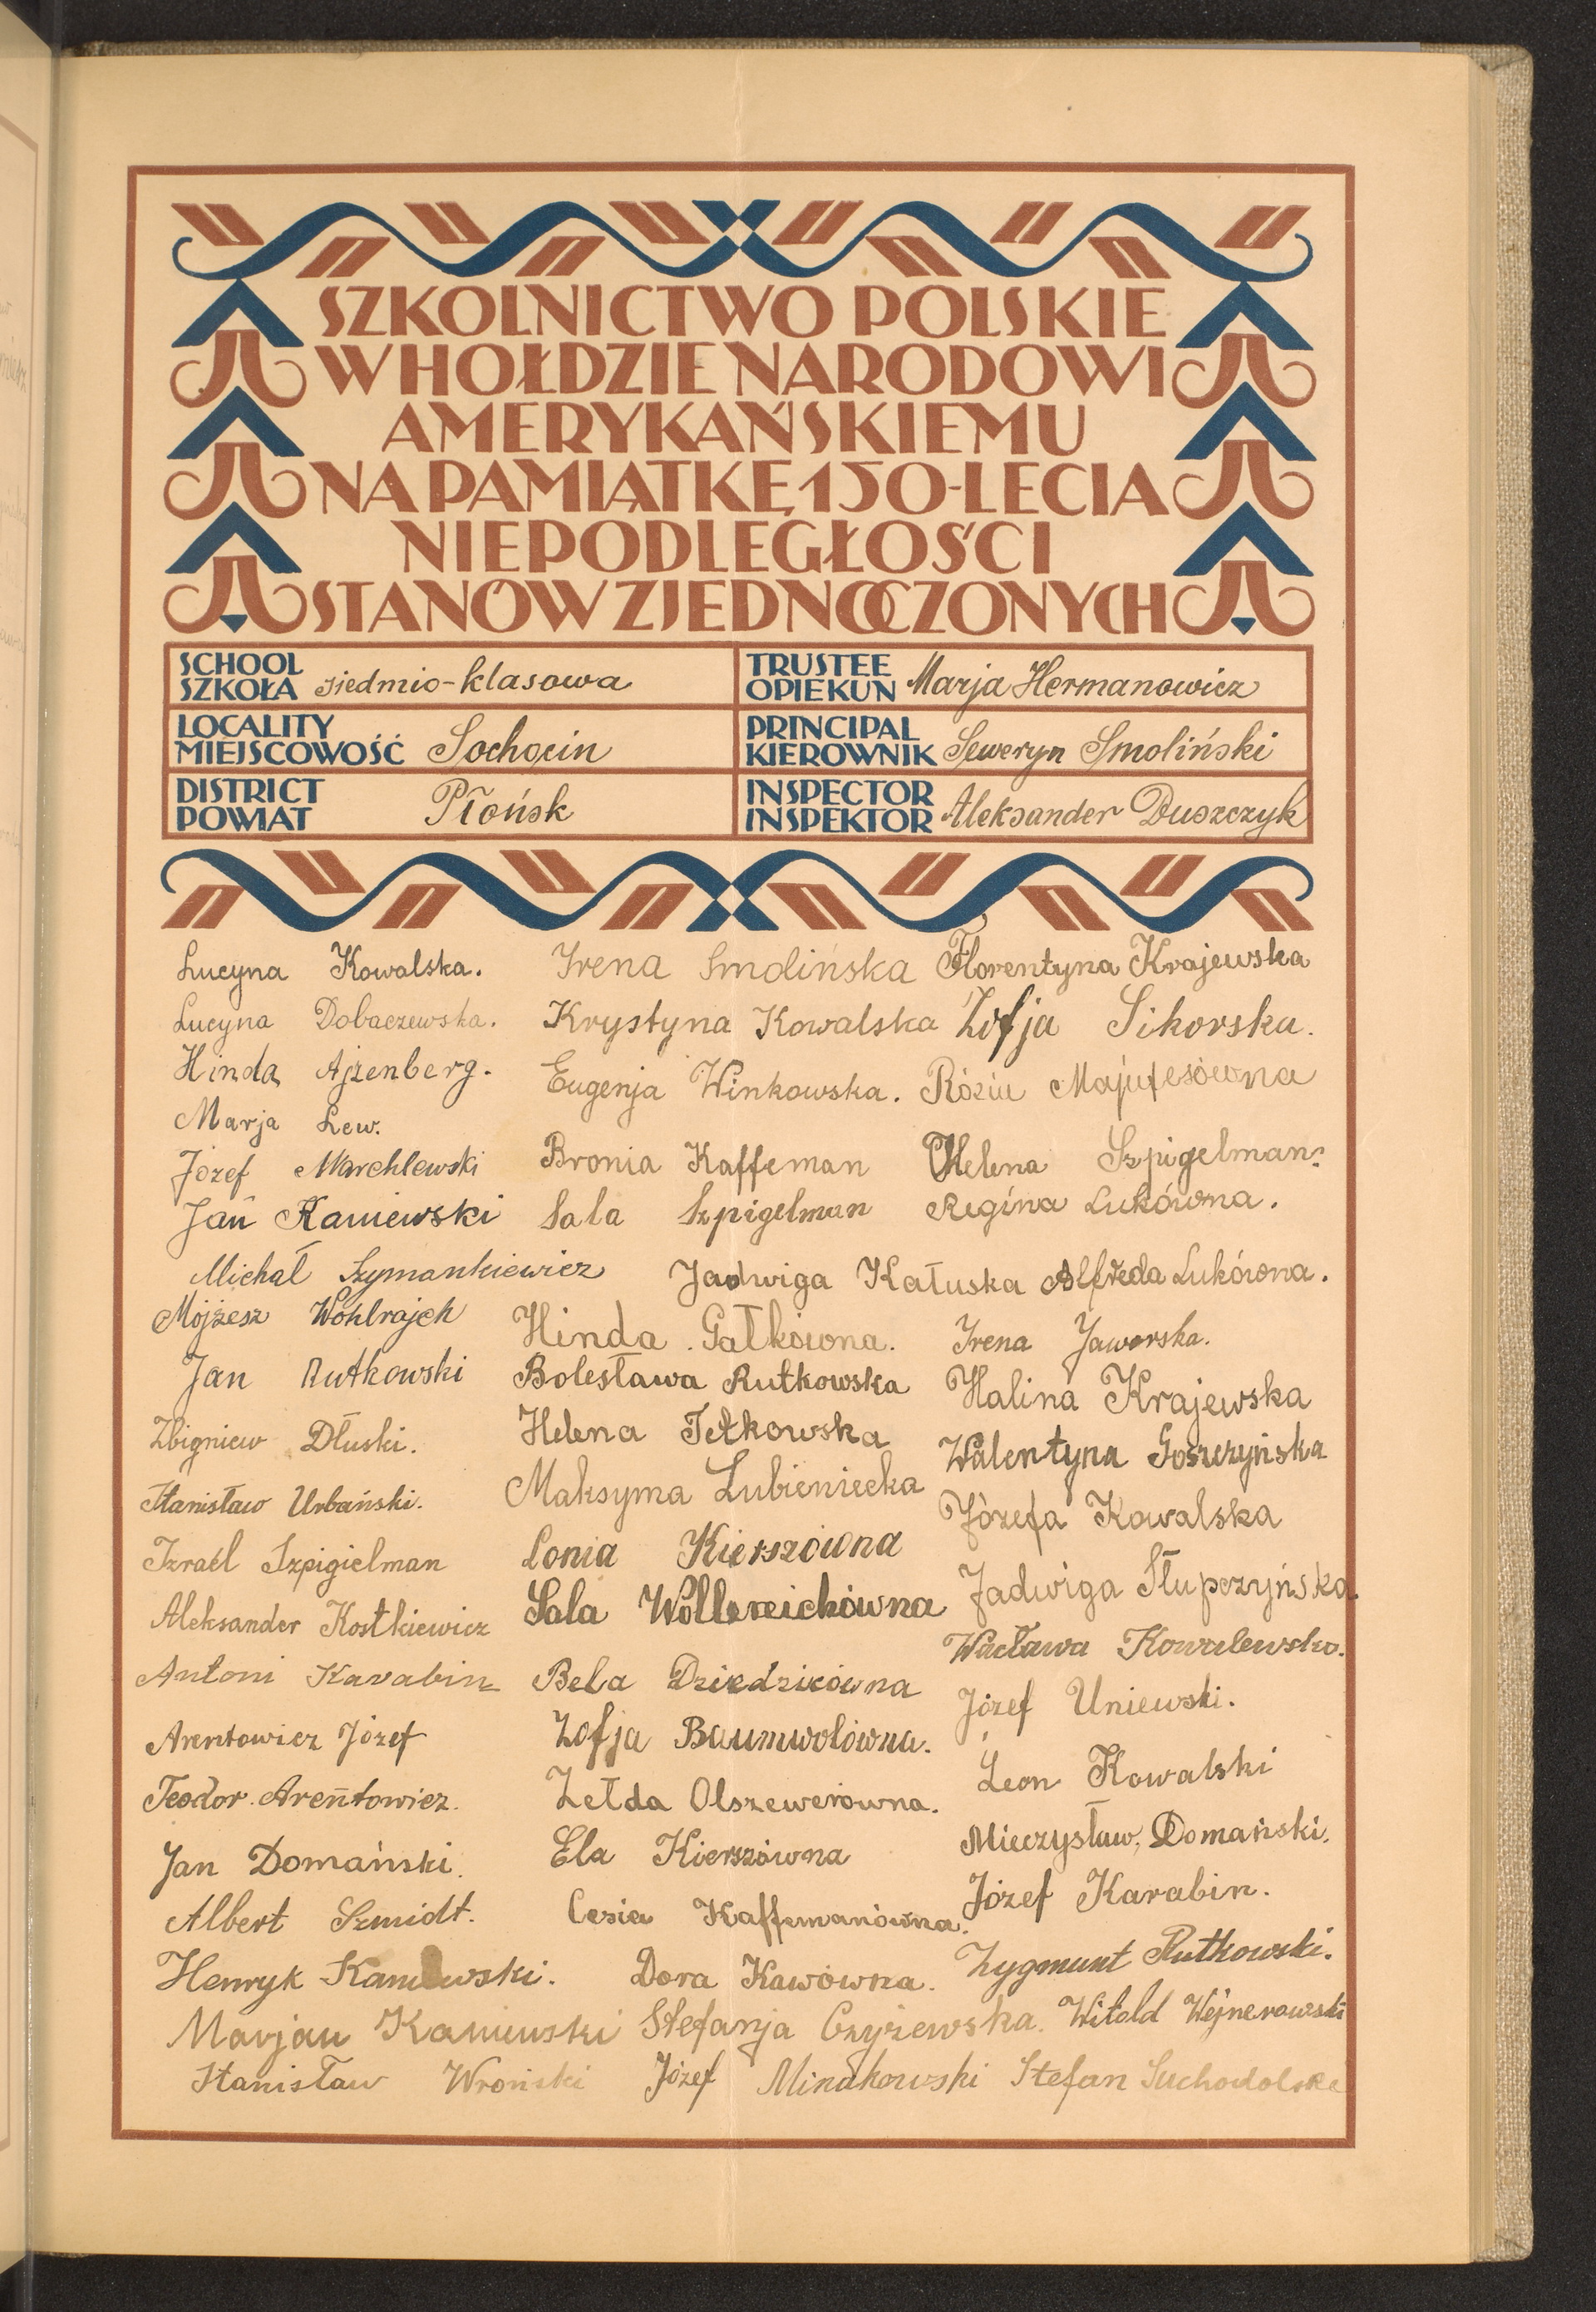 SZKOLNICTWO POLSKIE
W HOŁDZIE NARODOWI
AMERYKAŃSKIEMU
NA PAMIĄTKĘ 150-LECIA
NIEPODLEGŁOŚCI
STANÓW ZJEDNOCZONYCH
SCHOOL
SZKOŁA siedmio-klasowa
TRUSTEE
OPIEKUN Marja Hermanowicz
LOCALITY
MIEJSCOWOŚĆ Sochocin
PRINCIPAL
KIEROWNIK Seweryn Smoliński
DISTRICT
POWIAT Płońsk
INSPECTOR
INSPEKTOR Aleksander Duszczyk
Lucyna Kowalska.
Lucyna Dobaczewska.
Hinda Ajzenberg.
Marja Lew.
Józef Marchlewski
Jan Kaniewski
Michał Szymankiewicz
Mojżesz Wohlrajch
Jan Rutkowski
Zbigniew Dłuski.
Stanisław Urbański.
Izrael Szpigielman
Aleksander Kostkiewicz
Antoni Karabin
Arentowicz Józef
Teodor Arentowicz.
Jan Domański.
Albert Szmidt.
Henryk Kaniewski.
Marjan Kaniewski
Stanisław Wroński
Irena Smolińska
Krystyna Kowalska
Eugenja Winkowska.
Bronia Kaffeman
Sala Szpigelman
Jadwiga Kałuska
Hinda Gałkówna.
Bolesława Rutkowska
Helena Tetkowska
Maksyma Lubieniecka
Lonia Kierszówna
Sala Wollereichówna
Bela Dziedzicówna
Zofja Baumwolówna.
Zełda Olszewerówna.
Ela Kierszówna
Cesia Kaffemanówna.
Dora Kawówna.
Stefanja Czyżewska.
Józef Minakowski
Florentyna Krajewska
Zofja Sikorska.
Rózia Majufesówna
Helena Szpigelman.
Regina Lukówna.
Alfreda Lukówna.
Irena Jaworska.
Halina Krajewska
Walentyna Goszczyńska
Józefa Kowalska
Jadwiga Słupczyńska.
Wacława Kowalewska.
Józef Uniewski.
Leon Kowalski
Mieczysław Domański.
Józef Karabin.
Zygmunt Rutkowski.
Witold Wejnerowski
Stefan Suchodolski